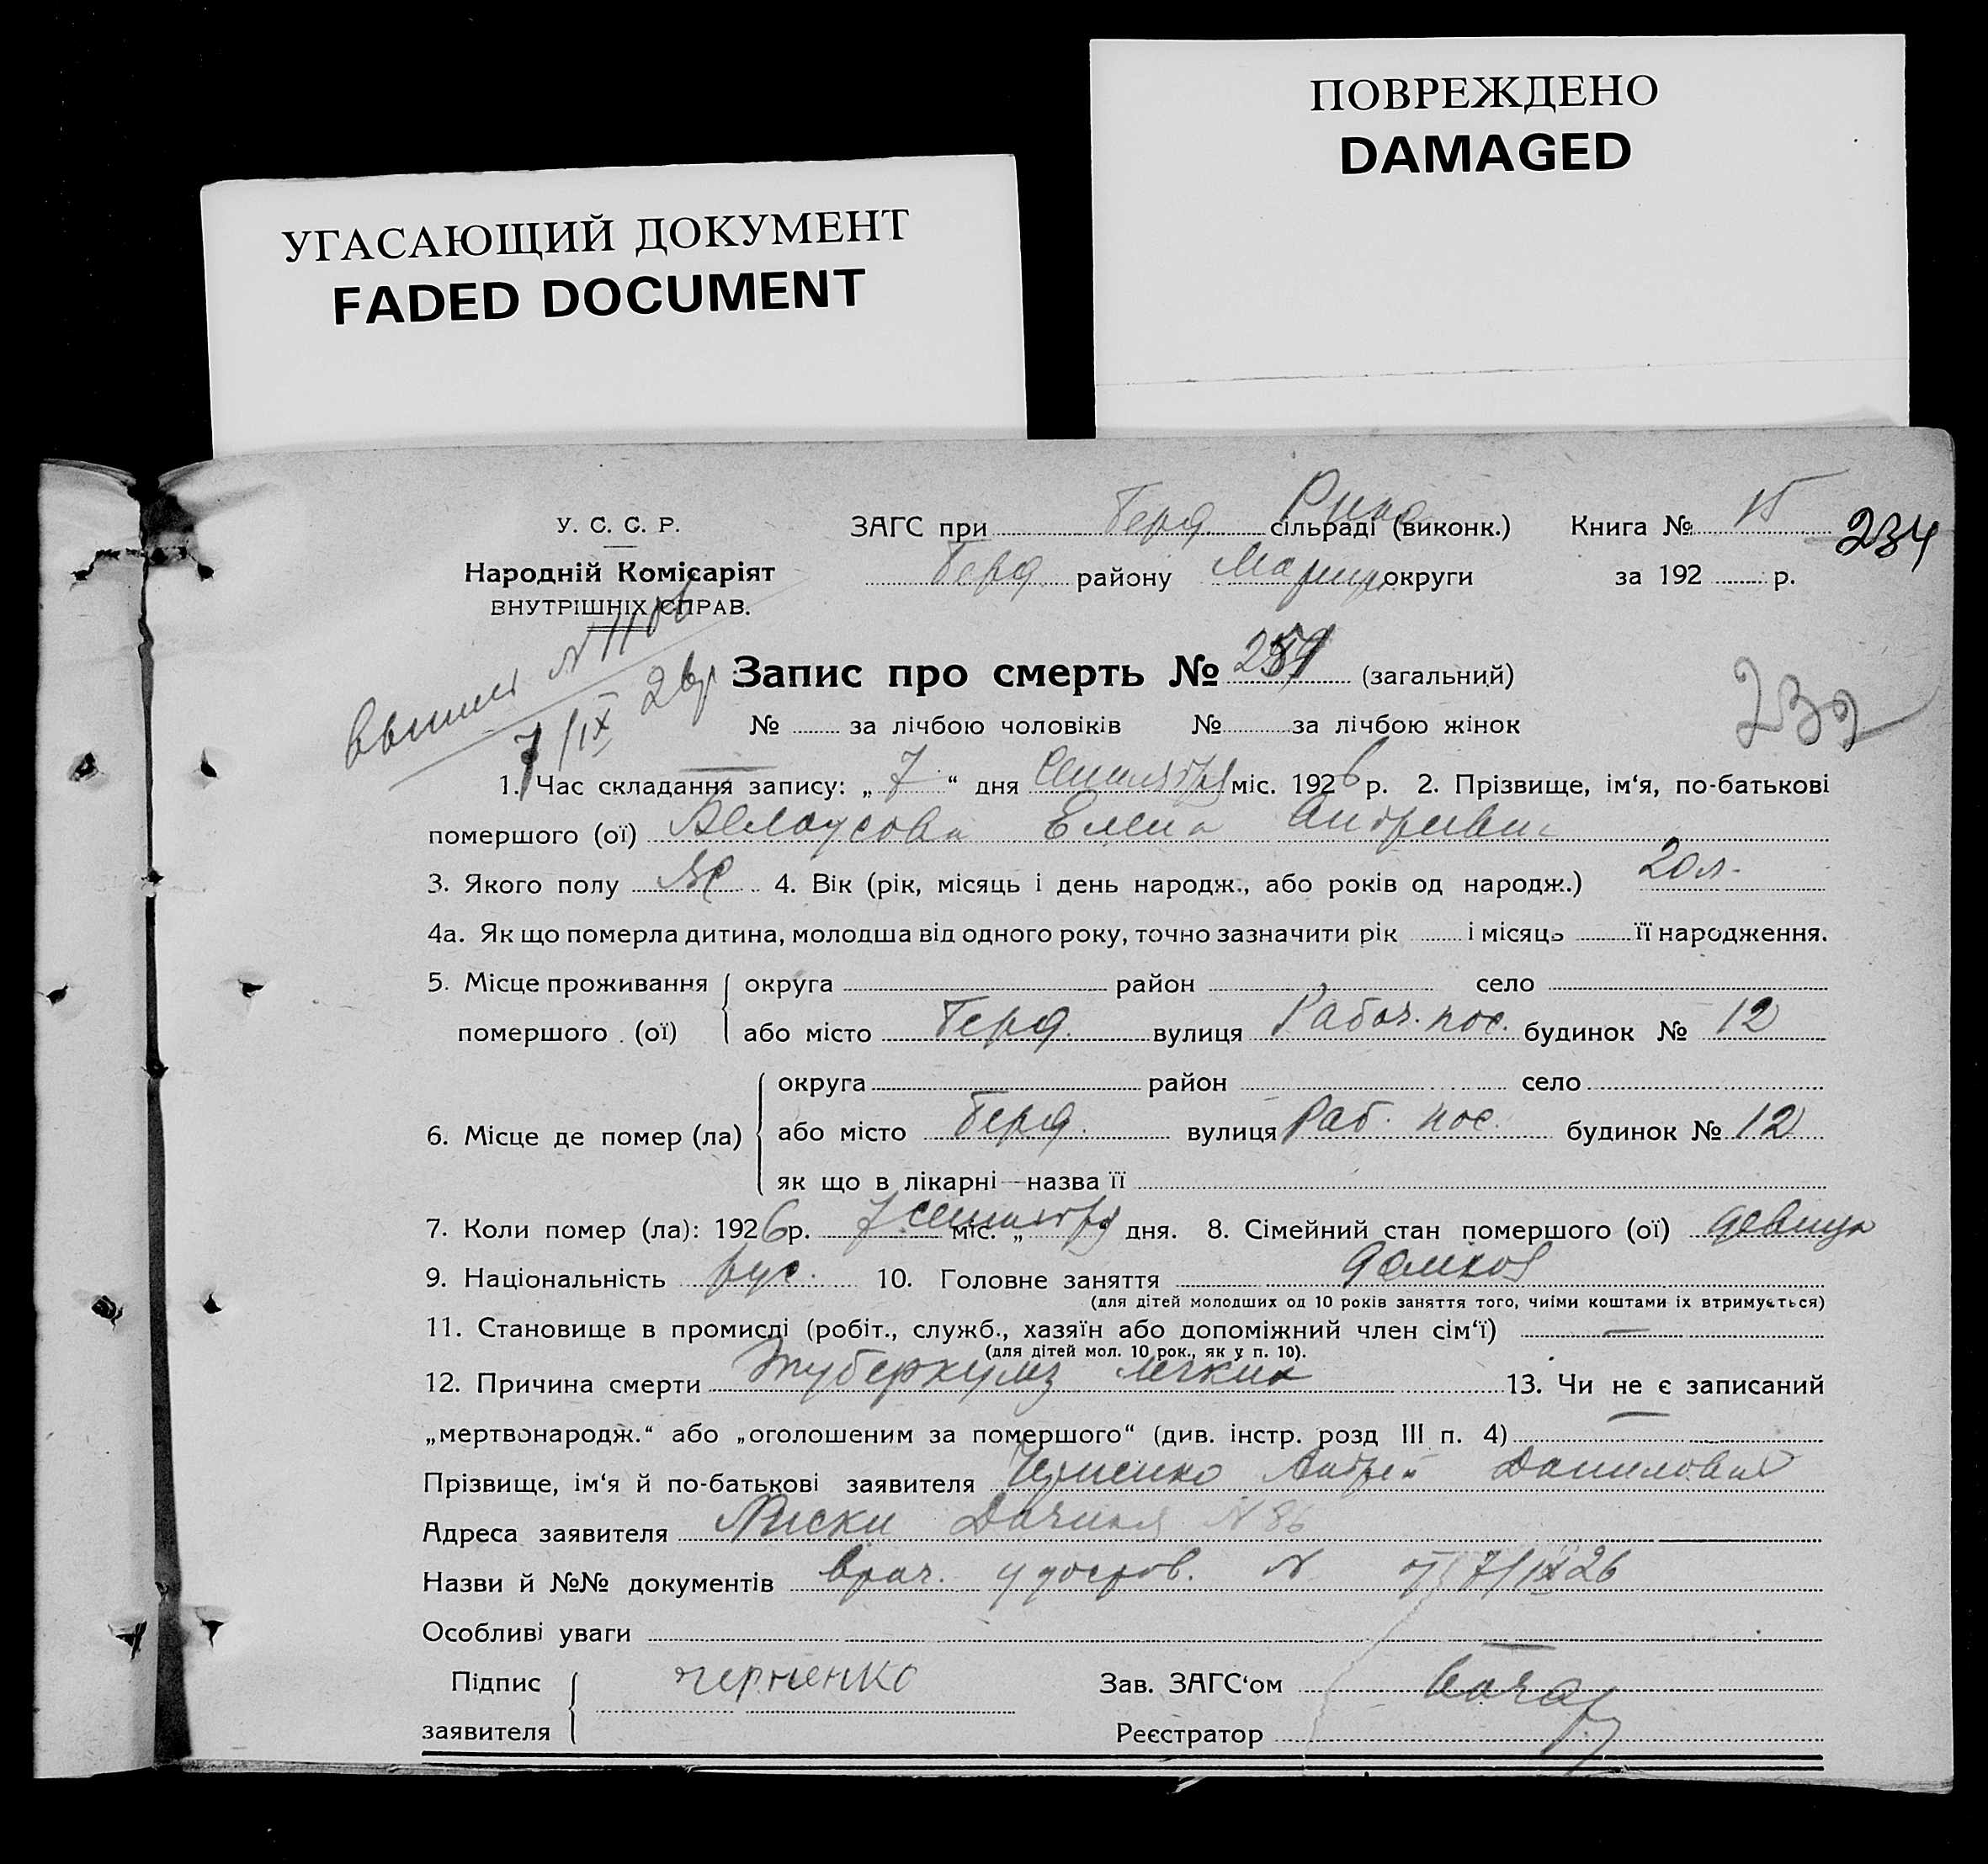 ПОВРЕЖДЕНО
DAMAGED
УГАСАЮЩИЙ ДОКУМЕНТ
FADED DOCUMENT
У. С. С. Р.
Народній Комісаріят
ВНУТРІШНІХ СПРАВ.
ЗАГС при Берд. Рика сільраді (виконк.) Книга №
234
Берд. району округи за 192 р.
7/IX 26 г
Запис про смерть № 259 (загальний)
№ за лічбою чоловіків № за лічбою жінок
232
1. Час складання запису: „ 7 “ дня Сентября міс. 1926 р. 2. Прізвище, ім‘я, по-батькові
помершого (ої) Белоусова Елена
3. Якого полу 4. Вік (рік, місяць і день народж., або років од народж.) 20 л.
4а. Як що померла дитина, молодша від одного року, точно зазначити рік і місяць її народження.
5. Місце проживання помершого (ої)
округа район село
або місто Берд. вулиця Рабоч. пос. будинок № 12
6. Місце де помер (ла)
округа район село
або місто Берд. вулиця Раб. пос. будинок № 12
як що в лікарні—назва її
7. Коли помер (ла): 1926 р. 7 сентября міс. „ дня. 8. Сімейний стан помершого (ої) девица
9. Національність рус. 10. Головне заняття домхоз
(для дітей молодших од 10 років заняття того, чиїми коштами їх втримується)
11. Становище в промислі (робіт., служб., хазяїн або допоміжний член сім‘ї) —
(для дітей мол. 10 рок., як у п. 10).
12. Причина смерти туберкулез легких 13. Чи не є записаний
„мертвонародж.“ або „оголошеним за помершого“ (див. інстр. розд III п. 4) —
Прізвище, ім‘я й по-батькові заявителя Черненко Андрей Данилович
Адреса заявителя Лиски Дачная N 86
Назви й №№ документів врач. удостов. N 7/IX 26
Особливі уваги —
Підпис заявителя черненко
Зав. ЗАГС‘ом
Реєстратор